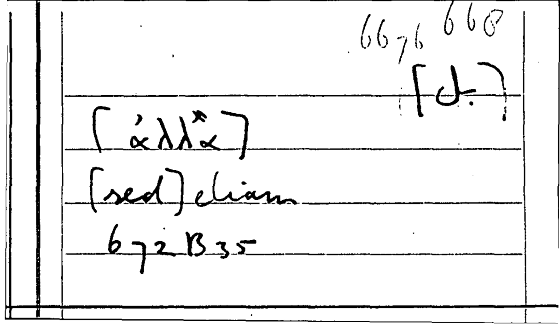 6676 668
[cf.]
[ἀλλὰ]
[sed] etiam
672 B 35